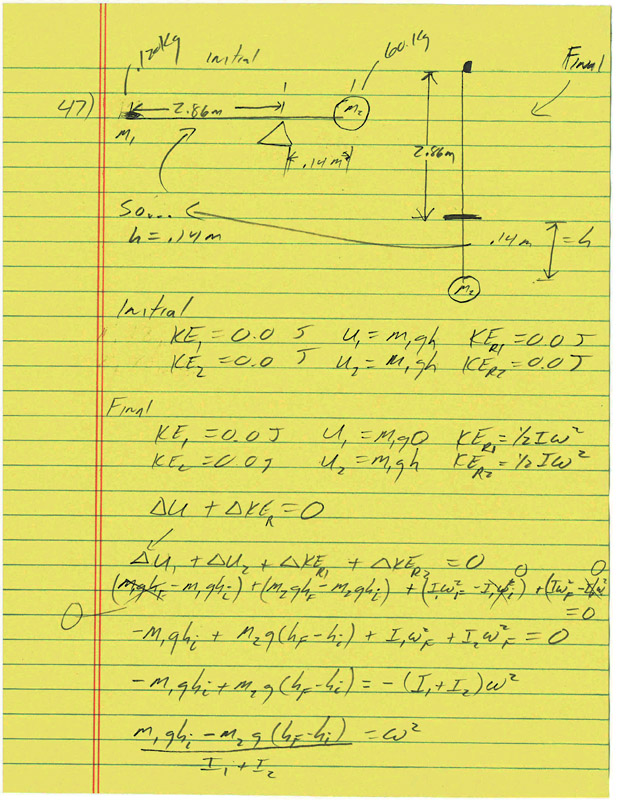 .120Kg Initial 60.Kg Final
47) 2.86m M₂
M₁ .14m 2.86m
So....
h = .14m .14m = h
M₂
Initial
KE₁ = 0.0 J U₁ = m₁gh KE_R1 = 0.0 J
KE₂ = 0.0 J U₂ = m₁gh KE_R2 = 0.0 J
Final
KE₁ = 0.0 J U₁ = m₁g0 KE_R1 = 1/2 Iω²
KE₂ = 0.0 J U₂ = m₁gh KE_R2 = 1/2 Iω²
ΔU + ΔKE_R = 0
ΔU₁ + ΔU₂ + ΔKE_R1 + ΔKE_R2 = 0
0 0
(m₁gh_F - m₁gh_i) + (m₂gh_F - m₂gh_i) + (I₁ω_F² - I₁ω_i²) + (Iω_F² - Iω²)
0 = 0
-m₁gh_i + m₂g(h_F - h_i) + I₁ω_F² + I₂ω_F² = 0
-m₁gh_i + m₂g(h_F - h_i) = -(I₁ + I₂)ω²
m₁gh_i - m₂g(h_F - h_i) = ω²
I₁ + I₂